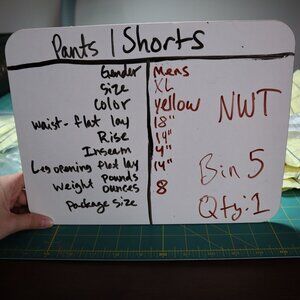 Pants / Shorts
Gender Mens
Size XL
Color Yellow
Waist-flat lay 18"
Rise 14"
Inseam 4"
Leg opening flat lay 14"
Weight pounds
ounces 8
Package size
NWT
Bin 5
Qty:1